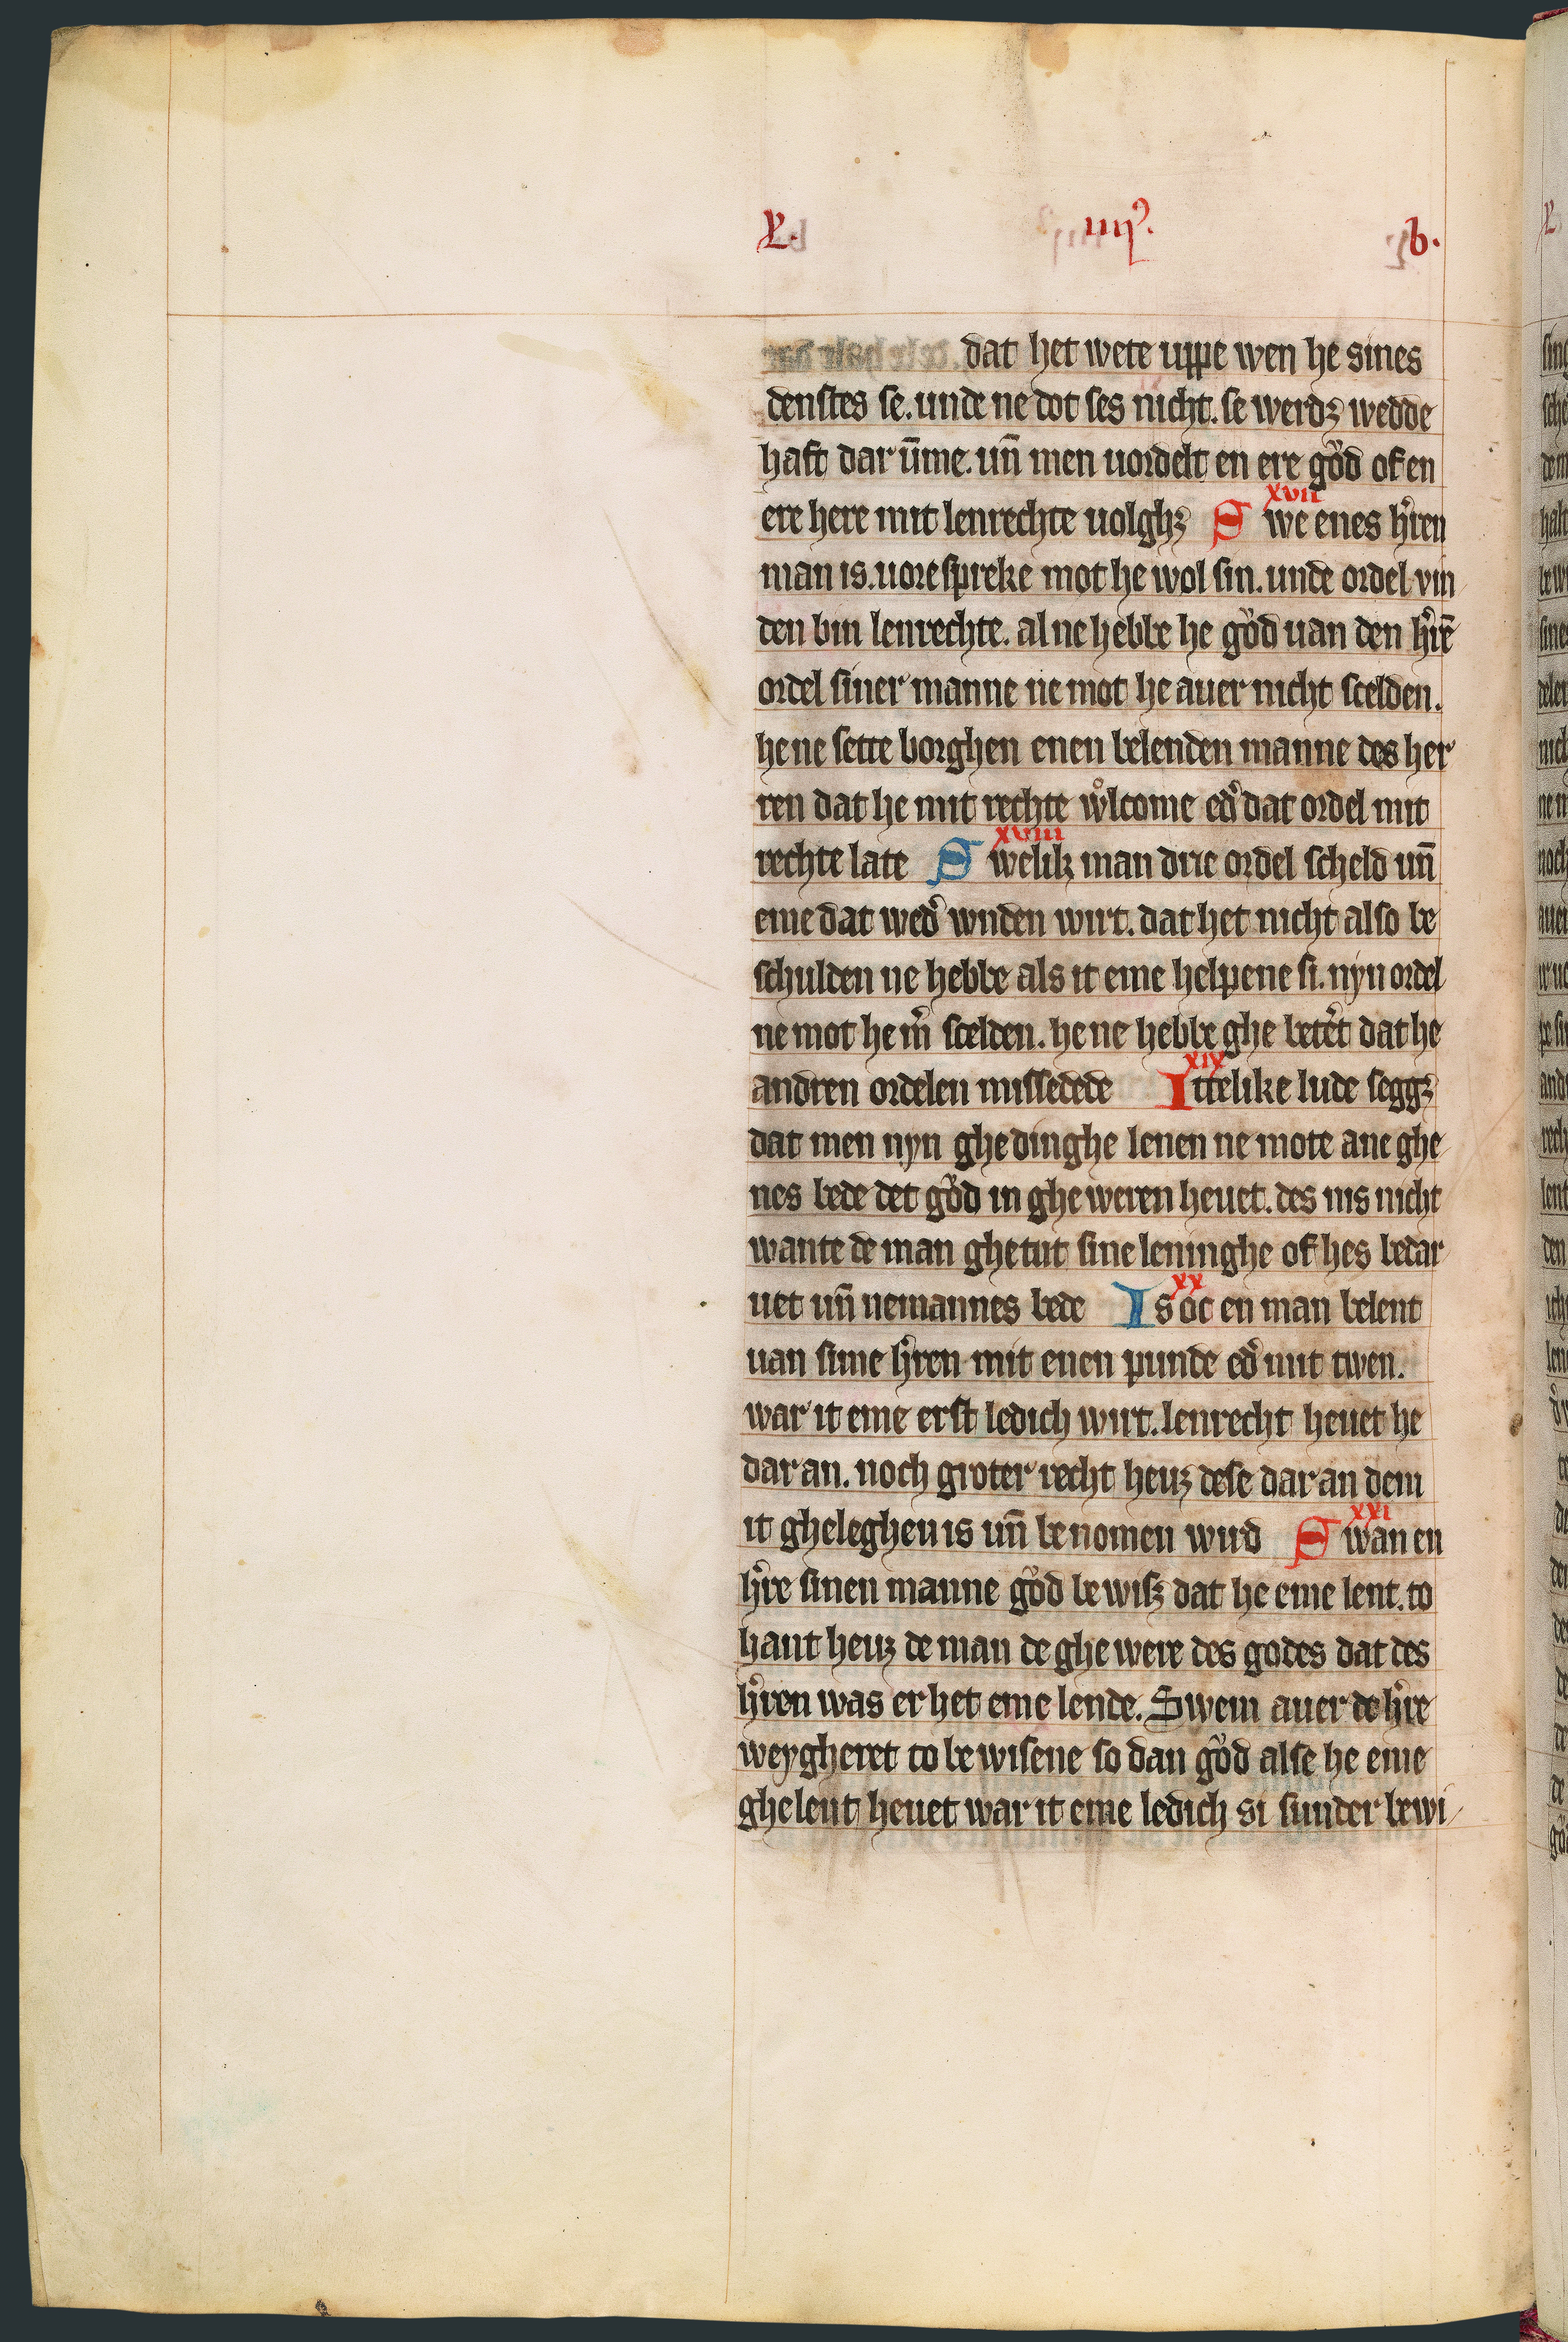 L. iiii⁹. b.
dat het wete uppe wen he sines
denstes se. unde ne dot ses nicht. se werdꝫ wedde
haft dar ūme. un̄ men uordelt en ere goͮd of en
ere here mit lenrechte uolghꝫ xvii Swe enes hͤren
man is. uorespreke mot he wol sin. unde ordel vin
den bin lenrechte. al ne hebbe he goͮd uan den hͤrē
ordel siner manne ne mot he auer nicht scelden.
he ne sette borghen enen belenden manne des her
ren dat he mit rechte wͦlcome edͤ dat ordel mit
rechte late xviii Swelik man drie ordel scheld un̄
eme dat wedͤ wnden wirt. dat het nicht also be
schulden ne hebbe als it eme helpene si. nyn ordel
ne mot he mͤ scelden. he ne hebbe ghe betͤt dat he
andren ordelen missedede xix Ittelike lude seggꝫ
dat men nyn ghedinghe lenen ne mote ane ghe
nes bede det goͮd in ghe weren heuet. des nis nicht
wante de man ghetut sine leninghe of hes bedar
uet un̄ nemannes bede xx Is oc en man belent
uan sime hͤren mit enen punde edͤ mit twen.
war it eme erst ledich wirt. lenrecht heuet he
dar an. noch groter recht heuꝫ dese dar an dem
it gheleghen is un̄ benomen wird xxi Swan en
hͤre sinen manne goͮd bewisꝫ dat he eme lent. to
hant heuꝫ de man de ghe were des godes dat des
hͤren was er het eme lende. Swem auer de hͤre
weygheret to bewisene so dan goͮd alse he eme
ghelent heuet war it eme ledich si sunder bewi